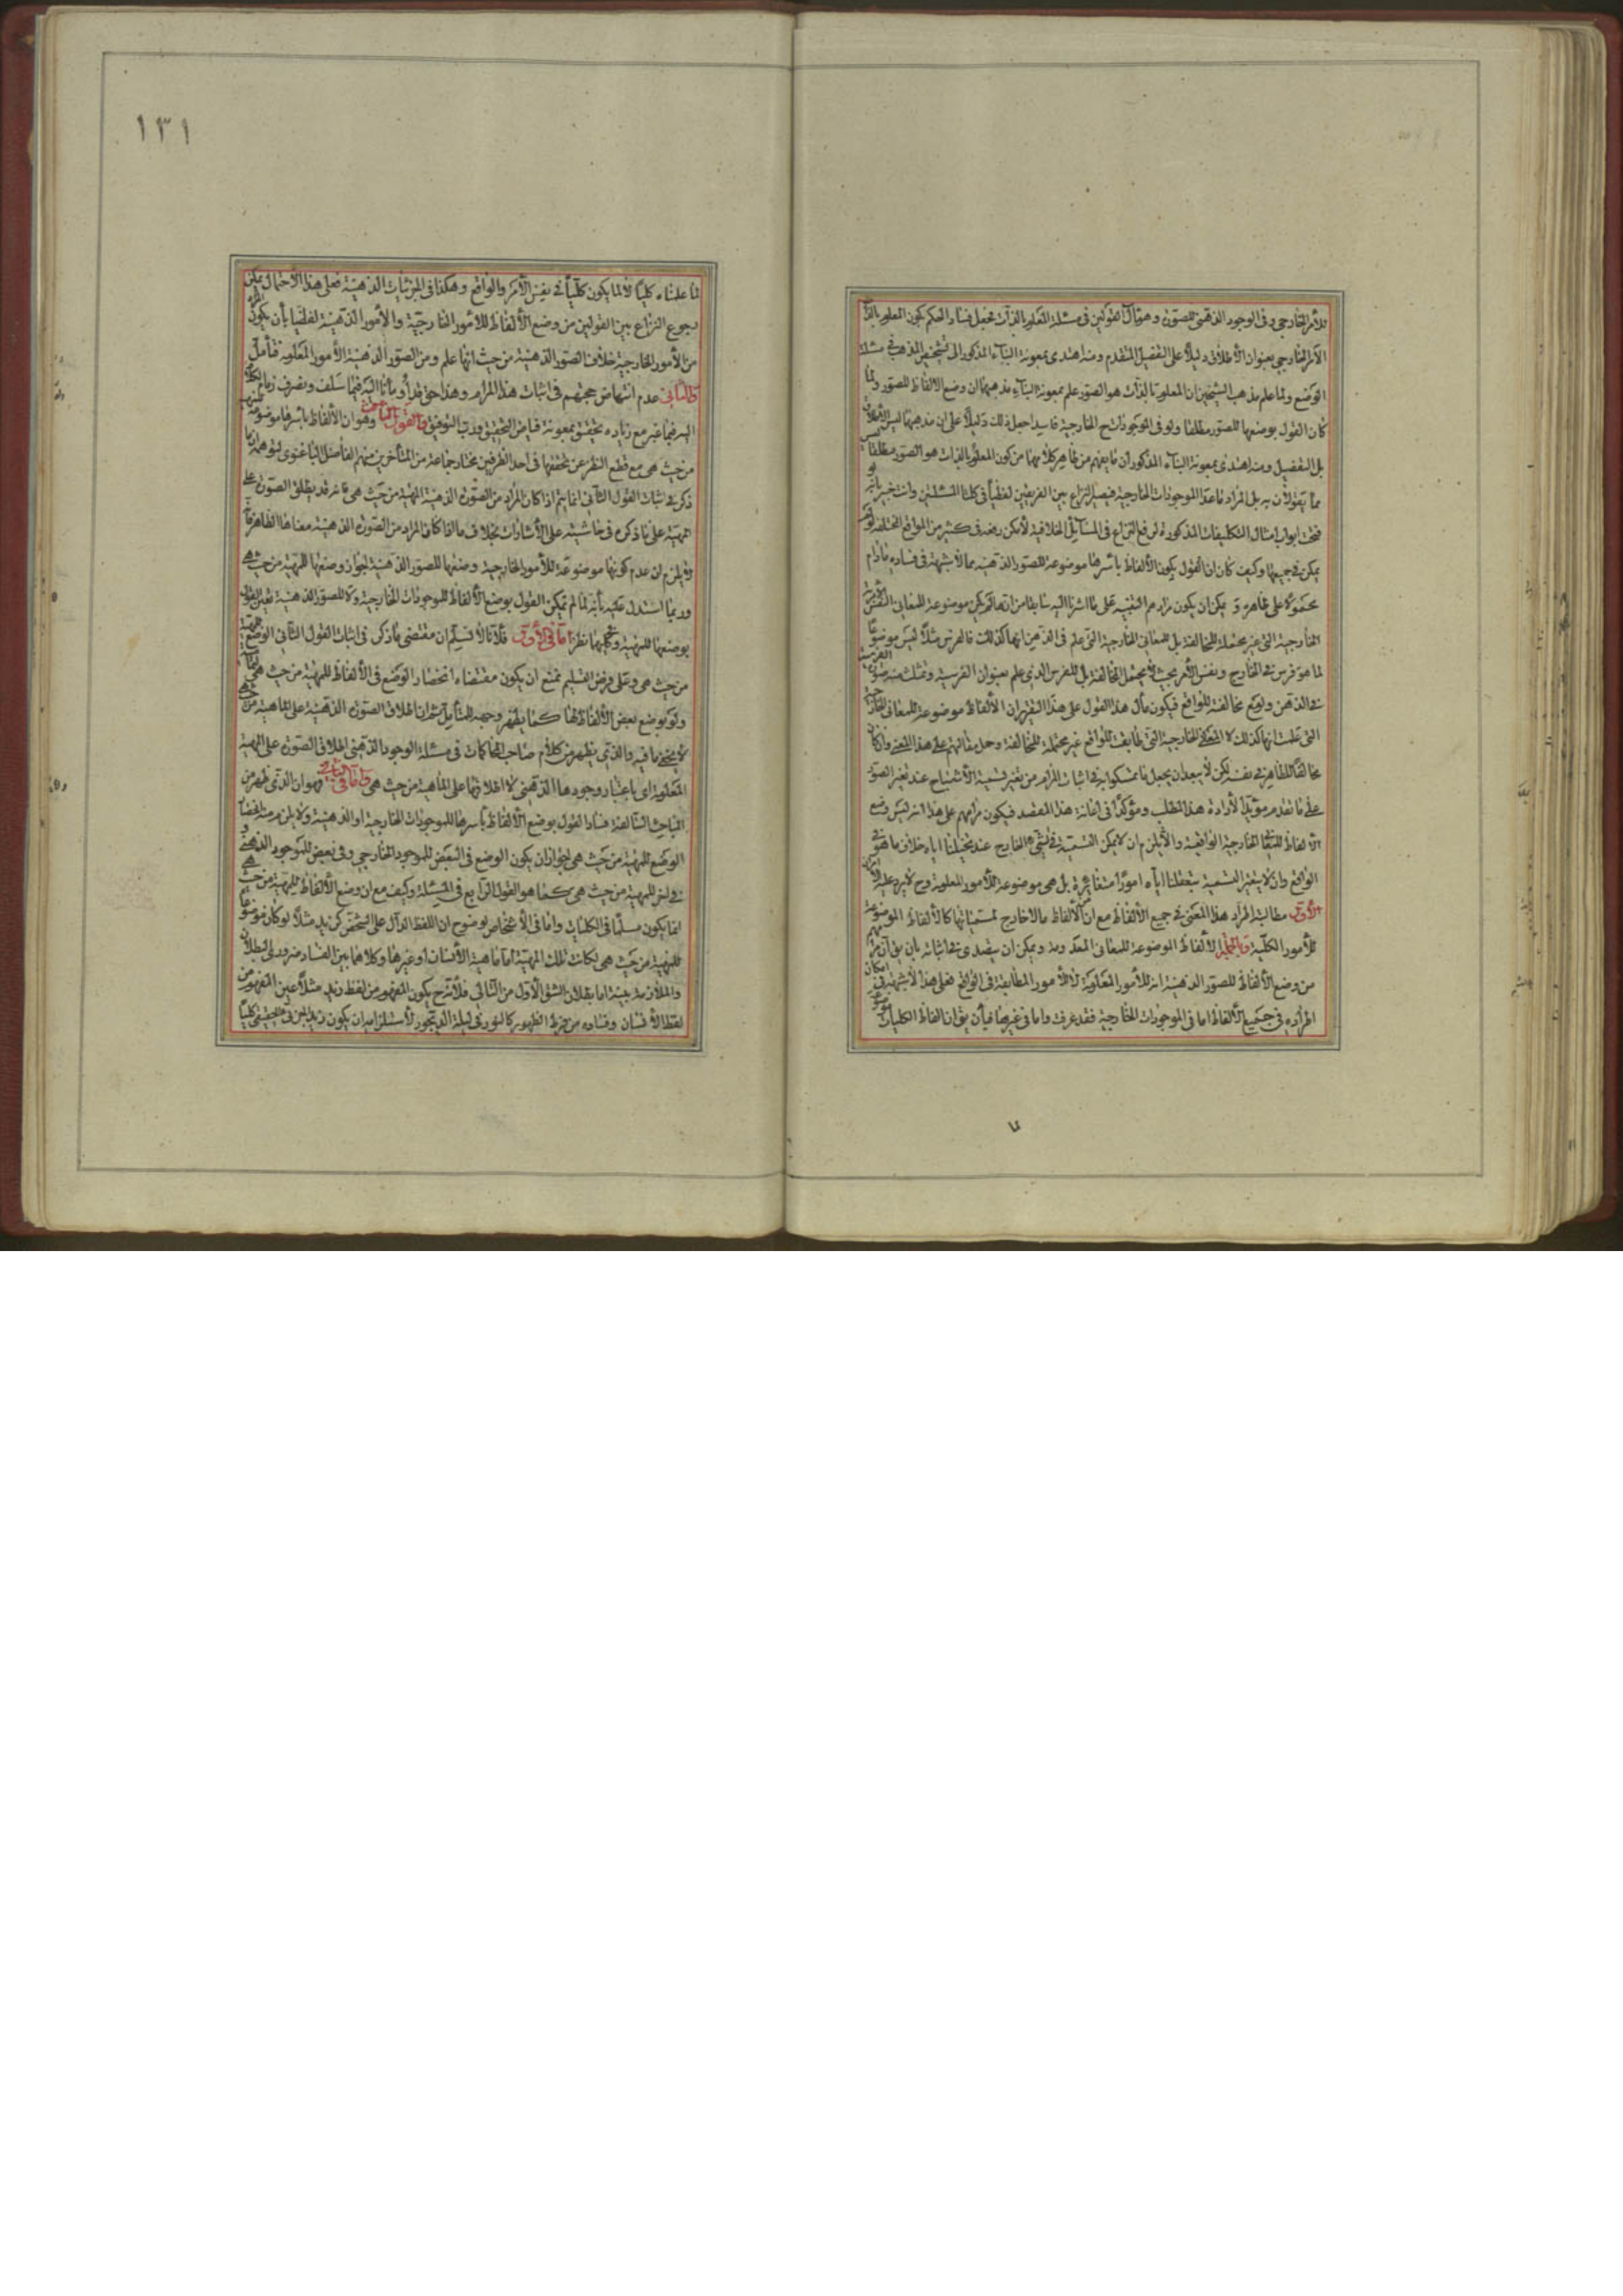 للأمر الخارجي وفي الوجود الذهني للصورة وهو مآل القولين في مسئلة المعلوم بالذات يجعل فساد الحكم بكون المعلوم بالذات
الأمر الخارجي بعنوان الأطلاق دليلاً على التفصيل المتقدم ومنه اهتدى بمعونة البناء المذكور الى تشخيص المذهب في مسئلة
الوضع ولما علم مذهب الشيخين ان المعلوم بالذات هو الصور علم بمعونة البناء مذهبهما ان وضع الالفاظ للصور ولما
كان القول بوضعها للصور مطلقا ولو في الموجودات الخارجية فاسدا جعل ذلك دليلاً على ان مذهبهما ليس الاطلاق
بل التفصيل ومنه اهتدى بمعونة البناء المذكور ان ما يفهم من ظاهر كلامهما من كون المعلوم بالذات هو الصور مطلقا ليس
مما يقولان به بل المراد ما عدا الموجودات الخارجية فيصير النزاع بين الفريقين لفظياً في كلتا المسئلتين وانت خبير بانه لو
فتحت ابواب امثال التكليفات المذكورة لرفع النزاع في المسائل الخلافية لأمكن رفعه في كثير من المواقع المختلفة
يمكن في جميعها وكيف كان ان القول بكون الألفاظ بأسرها موضوعة للصور الذهنية مما لا شبهة في فساده ما دام
محمولا على ظاهره و يمكن ان يكون مرادهم التنبيه على ما اشرنا اليه سابقا من انها لم يكن موضوعة للمعاني النفس الأمرية
الخارجية التي غير محتملة للمخالفة بل للمعاني الخارجية التي علم في الذهن انها كذلك فالفرس مثلاً ليس موضوعا
لما هو فرس في الخارج ونفس الأمر بحيث لا يحتمل المخالفة بل للفرس الذي علم بعنوان الفرسية وتمثلت منه صورة الفرسية
في الذهن ولو مع مخالفته للواقع فيكون مآل هذا القول على هذا التقرير ان الألفاظ موضوعة للمعاني الخارجية
التي علمت انها كذلك لا للمعاني الخارجية التي طابقت للواقع غير محتملة للمخالفة وحمل مقالتهم على هذا المعنى وان كان
مخالفا للظاهر في نفسه لكن لا يبعد ان يجعل ما تمسكوا به في اثبات المرام من تغير تسمية الأشباح عند تغير الصور
على ما تقدم مؤيداً لأرادة هذا المطلب ومؤكداً في افادة هذا المقصد فيكون مرامهم على هذا انه ليس وضع
الألفاظ للمعاني الخارجية الواقعية والا يلزم ان لا يمكن التسمية في شئ في الخارج عند تخيلنا اياه خلاف ما هو في
الواقع وان لا يتغير التسمية بتعقلنا اياه امورا متغايرة بل هي موضوعة للأمور المعلومة وح لا يرد عليه الأمران
الأول مطالبة اطراد هذا المعنى في جميع الألفاظ مع ان من الألفاظ ما لا خارج لمسمياتها كالألفاظ الموضوعة
للأمور الكلية وبالجملة الألفاظ الموضوعة للمعاني المعدومة ويمكن ان يتصدى في اثباته بان يق ان مرادهم
من وضع الألفاظ للصور الذهنية انه للأمور المعلومة لا للأمور المطابقة في الواقع فعلى هذا لا شبهة في امكان
اطراده في جميع الألفاظ اما في الموجودات الخارجية فقد عرفت واما في غيرها فبأن يق ان الفاظ الكليات موضوعة
١٣١
لما علمناه كلياً لا لما يكون كلياً في نفس الأمر والواقع وهكذا في الجزئيات الذهنية فعلى هذا الأحتمال يمكن
رجوع النزاع بين القولين من وضع الألفاظ للأمور الخارجية والأمور الذهنية لفظيا بأن يكون المراد
من الأمور الخارجية خلاف الصور الذهنية من حيث انها علم ومن الصور الذهنية الأمور المعلومة فتأمل
والثاني عدم انتهاض حججهم في اثبات هذا المرام وهذا حق وقد أومأنا اليه فيما سلف ونصرف زمام الكلام
اليه فيما غبر مع زيادة تحقيق بمعونة فياض التحقيق ورب التوفيق والقول الثالث وهو ان الألفاظ باسرها موضوعة للمهية
من حيث هي مع قطع النظر عن تحققها في احد الظرفين مختار جماعة من المتأخرين منهم الفاضل الباغنوي لتوهم ان ما
ذكر في اثبات القول الثاني انما يتم اذا كان المراد من الصورة الذهنية المهية من حيث هي فانه قد يطلق الصورة على
المهية على ما ذكره في حاشيته على الأشارات بخلاف ما اذا كان المراد من الصورة الذهنية معناها الظاهر فانه
لا يلزم من عدم كونها موضوعة للأمور الخارجية وضعها للصور الذهنية لجواز وضعها للمهية من حيث هي
وربما استدل عليه بأنه لما لم يمكن القول بوضع الألفاظ للموجودات الخارجية ولا للصور الذهنية تعين القول
بوضعها للمهية وفي كليهما نظر اما في الأول فلأنا لا نسلم ان مقتضى ما ذكر في اثبات القول الثاني الوضع للمهية
من حيث هي وعلى فرض التسليم نمنع ان يكون مقتضاه انحصار الوضع في الألفاظ للمهية من حيث هي
ولو بوضع بعض الألفاظ لها كما يظهر وجهه للمتأمل ثم ان اطلاق الصورة الذهنية على الماهية من حيث هي
لا يخفى ما فيه والذي يظهر من كلام صاحب المحاكمات في مسئلة الوجود الذهني اطلاق الصورة على المهية
المعلومة اي باعتبار وجودها الذهني لا اطلاقها على الماهية من حيث هي واما في الثاني فهو ان الذي ظهر من
المباحث السالفة فساد القول بوضع الألفاظ بأسرها للموجودات الخارجية او الذهنية ولا يلزم منه انحصار
الوضع للمهية من حيث هي لجواز ان يكون الوضع في البعض للموجود الخارجي وفي بعض للموجود الذهني
في اخر للمهية من حيث هي كما هو القول الرابع في المسئلة وكيف مع ان وضع الألفاظ للمهية من حيث هي
انما يكون مسلما في الكليات واما في الأشخاص لوضوح ان اللفظ الدال على الشخص كزيد مثلاً لو كان موضوعا
للمهية من حيث هي لكانت تلك المهية اما ماهية الأنسان او غيرها وكلاهما بين الفساد ضروري البطلان
والملازمة بينة اما بطلان الشق الأول من التالي فلأنه ح يكون المفهوم من لفظ زيد مثلاً عين المفهوم من
لفظ الأنسان وفساده من فرط الظهور كالنور في ليلة الديجور لأستلزامه ان يكون زيد الجزئي الحقيقي كلياً